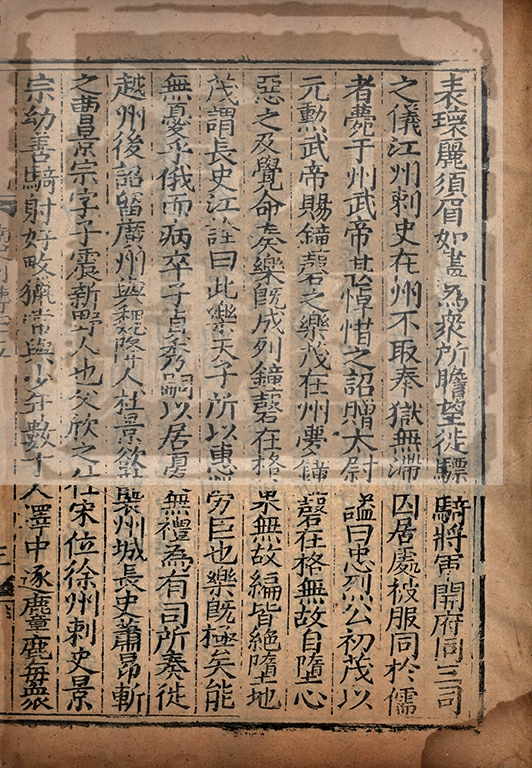 表環麗須眉如畫為衆所瞻望徙驃騎將軍開府同三司
之儀江州刺史在州不取奉獄無滯囚居處被服同於儒
者薨于州武帝甚悼惜之詔贈太尉謚曰忠烈公初茂以
元勲武帝賜鐘磬之樂茂在州夢鐘磬在格無故自墮心
惡之及覺命奏樂既成列鐘磬在格果無故編皆絶墮地
茂謂長史江詮曰此樂天子所以惠勞臣也樂既極矣能
無憂乎俄而病卒子貞秀嗣以居憂無禮為有司所奏徙
越州後詔留廣州與魏降人杜景欲襲州城長史蕭昂斬
之曹景宗字子震新野人也父欣之仕宋位徐州刺史景
宗幼善騎射好畋獵常與少年數十人澤中逐麞鹿每衆